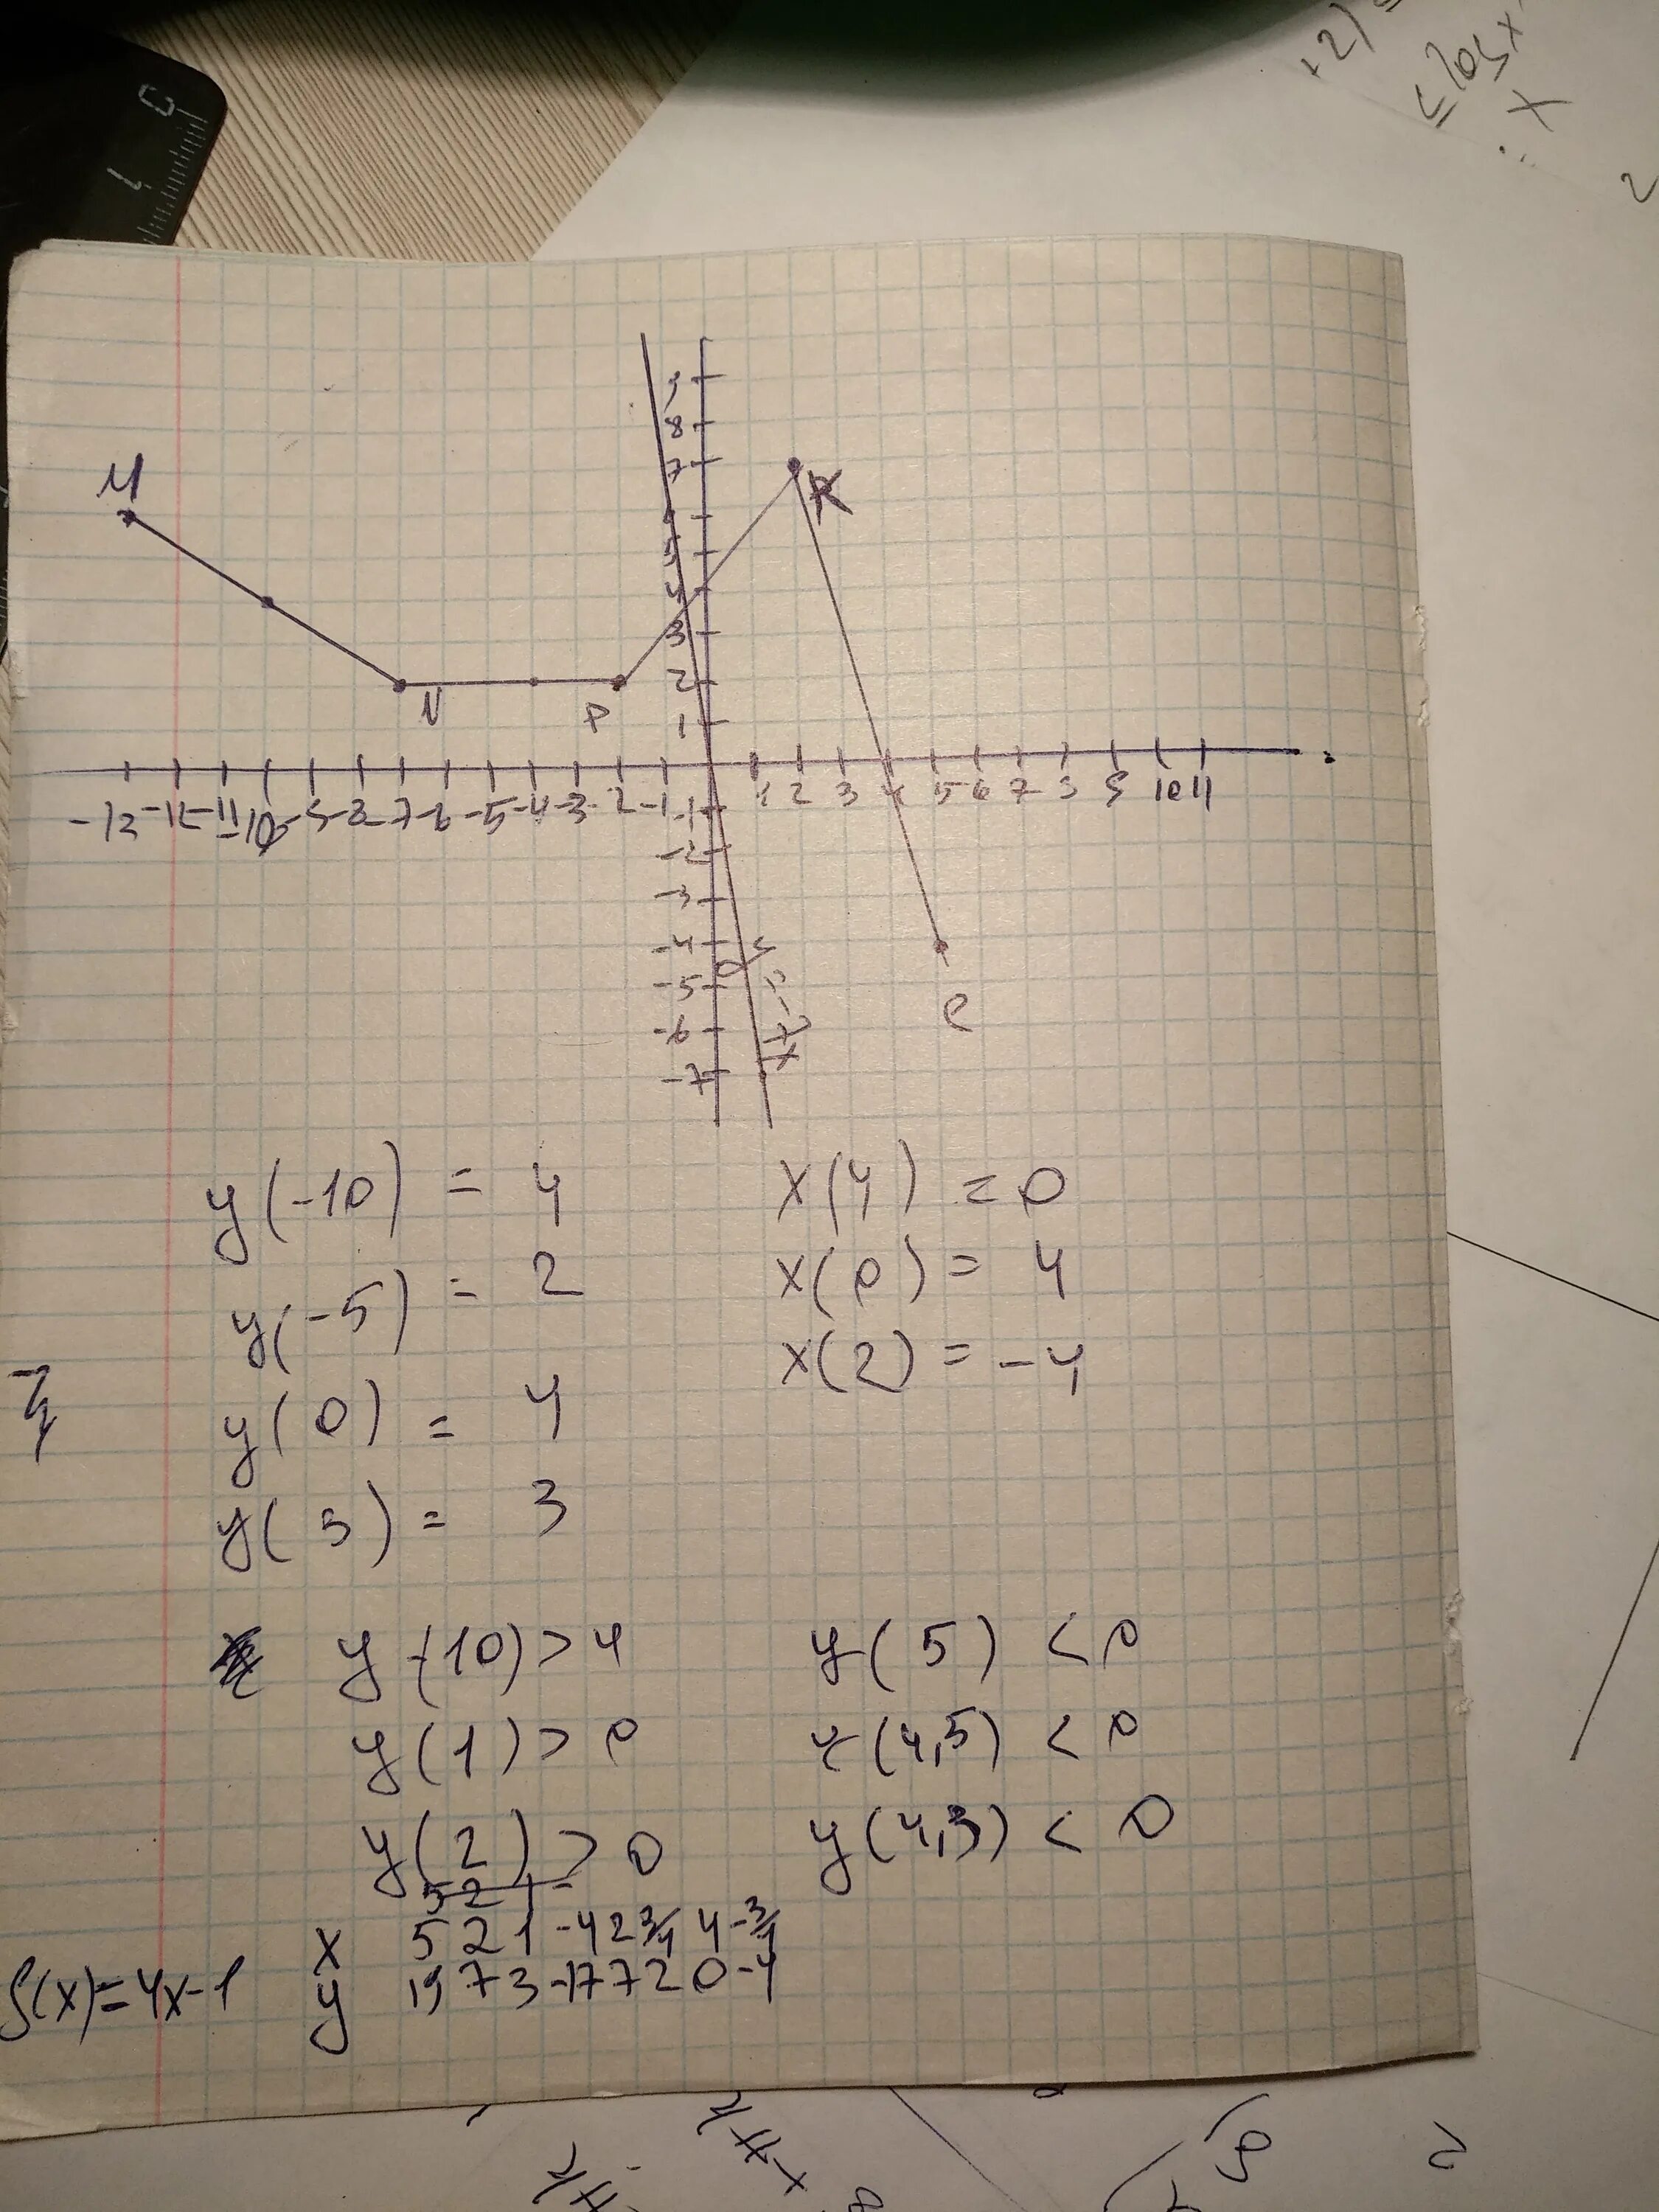 0
1
+2)
≤ log x
X
2
9
8
M
7
K
5
4
3
N
P
2
1
-13 -12 -11 -10 -9 -8 -7 -6 -5 -4 -3 -2 -1 1 2 3 4 5 6 7 8 9 10 11
-1
-2
-3
-4
-5
y=-7x
C
-6
-7
y(-10) = 4 x(4) = 0
y(-5) = 2 x(0) = 4
x(2) = -4
y(0) = 4
y(3) = 3
y(-10) > 4 y(5) < 0
y(1) > 0 y(4,5) < 0
y(2) > 0 y(4,3) < 0
5 2 1 -
x 5 2 1 -4 2 3/4 4 -3/4
f(x)=4x-1 y 19 7 3 -17 7 2 0 -4